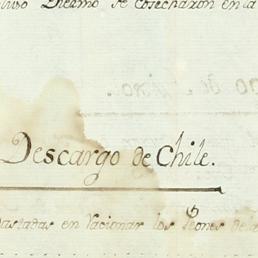 Diezmo se cosecharon en la
Descargo de Chile.
gastadas en racionar los Peones de la